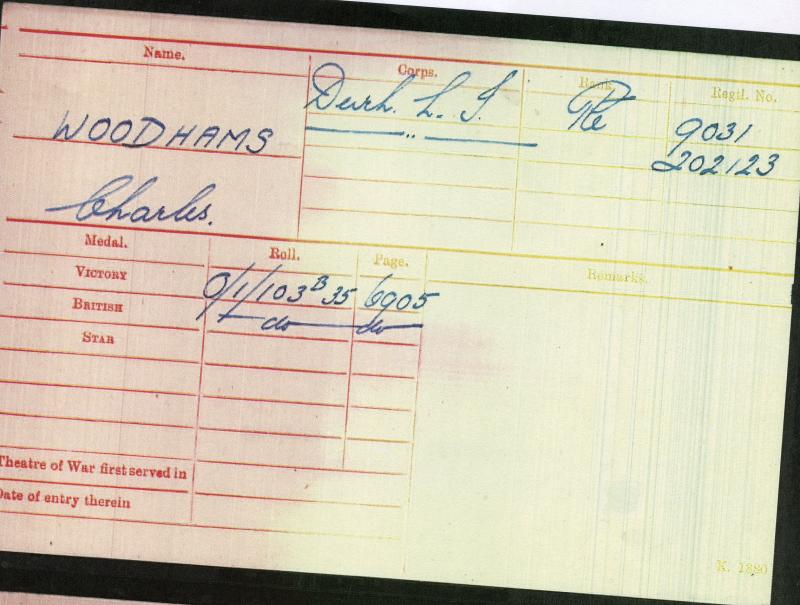 Name.
Corps.
Rank.
Regtl. No.
WOODHAMS
Durh. L. I.
Pte
9031
" 202123
Charles.
Medal.
Roll.
Page.
Remarks.
VICTORY
O/1/103 B 35
6905
BRITISH
do
do
STAR
Theatre of War first served in
Date of entry therein
K. 1380